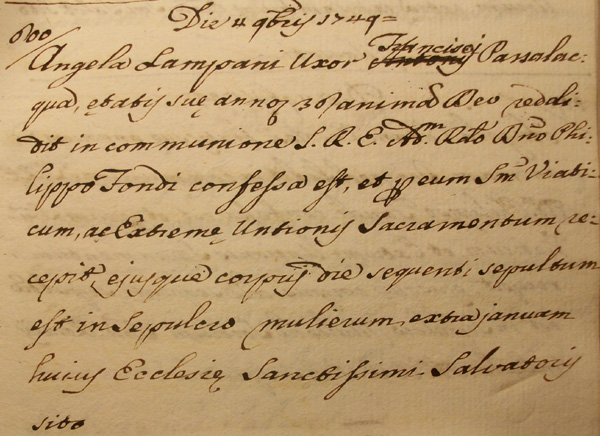 Die 4 9bris 1749=
Angela Lampani Uxor Francisci Antonij Passalac-
qua, ętatis suę annoꝝ 30 animã Deo reddi-
dit in communione S. R. E. Adm. Rdo Dno Phi-
lippo Tondi confessa est, et ꝑ eum Sm̃ Viati-
cum, ac Extremę Untionis Sacramentum re-
cepit, ejusque corpus die sequenti sepultum
est in Sepulcro mulierum, extra januam
huius Ecclesię Sanctissimi Salvatoris
sito